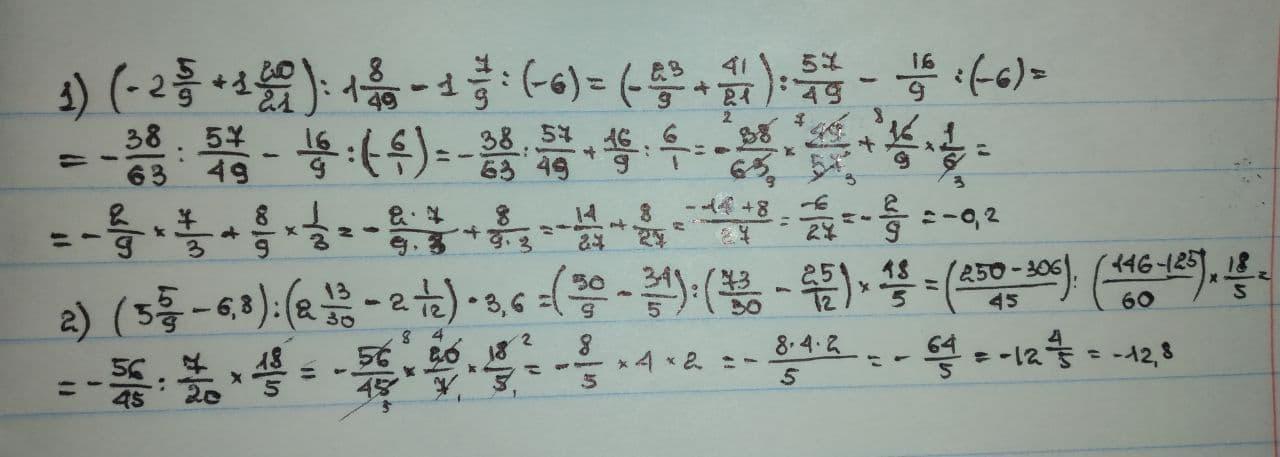 1) (-2 5/9 + 1 20/21) : 1 8/49 - 1 7/9 : (-6) = (-23/9 + 41/21) : 57/49 - 16/9 : (-6) =
= -38/63 : 57/49 - 16/9 : (-6/1) = -38/63 : 57/49 + 16/9 : 6/1 = - 2 38/63 9 × 7 49/57 3 + 8 16/9 × 1/6 3 =
= -2/9 × 7/3 + 8/9 × 1/3 = - 2·7/9·3 + 8/9·3 = -14/27 + 8/27 = -14+8/27 = -6/27 = -2/9 = -0,2
2) (5 5/9 - 6,8) : (2 13/30 - 2 1/12) · 3,6 = (50/9 - 34/5) : (73/30 - 25/12) × 18/5 = (250-306/45) : (146-125/60) × 18/5 =
= -56/45 : 7/20 × 18/5 = - 56/45 8 5 × 4 20/7 1 × 18/5 2 1 = -8/5 × 4 × 2 = - 8·4·2/5 = -64/5 = -12 4/5 = -12,8